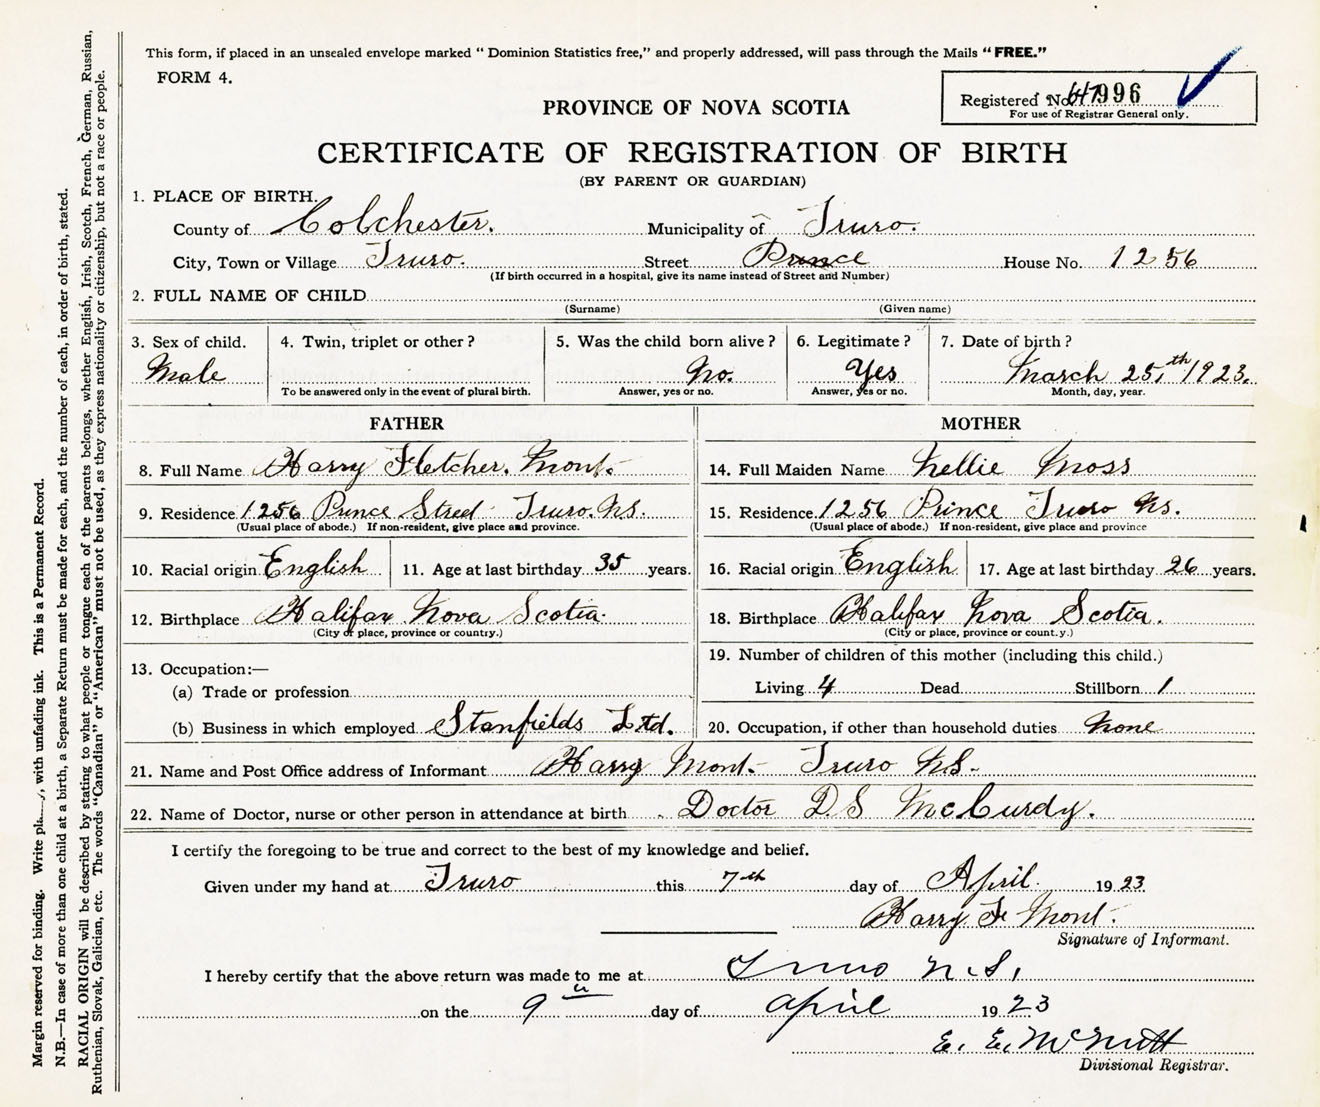 This form, if placed in an unsealed envelope marked “ Dominion Statistics free,” and properly addressed, will pass through the Mails “ FREE.”
FORM 4.
Registered No. 996
For use of Registrar General only.
PROVINCE OF NOVA SCOTIA
CERTIFICATE OF REGISTRATION OF BIRTH
(BY PARENT OR GUARDIAN)
1. PLACE OF BIRTH.
County of Colchester. Municipality of Truro.
City, Town or Village Truro. Street Prince House No. 1256
(If birth occurred in a hospital, give its name instead of Street and Number)
2. FULL NAME OF CHILD
(Surname) (Given name)
3. Sex of child. 4. Twin, triplet or other ? 5. Was the child born alive ? 6. Legitimate ? 7. Date of birth ?
Male No. Yes March 25,th 1923.
To be answered only in the event of plural birth. Answer, yes or no. Answer, yes or no. Month, day, year.
FATHER MOTHER
8. Full Name Harry Fletcher. Mont. 14. Full Maiden Name Nellie Moss
9. Residence 1256 Prince Street Truro. N.S. 15. Residence 1256 Prince Truro N.s.
(Usual place of abode.) If non-resident, give place and province. (Usual place of abode.) If non-resident, give place and province
10. Racial origin English 11. Age at last birthday 35 years. 16. Racial origin English 17. Age at last birthday 26 years.
12. Birthplace Halifax Nova Scotia. 18. Birthplace Halifax Nova Scotia.
(City or place, province or country.) (City or place, province or count.y.)
13. Occupation:— 19. Number of children of this mother (including this child.)
(a) Trade or profession Living 4 Dead Stillborn 1
(b) Business in which employed Stanfields Ltd. 20. Occupation, if other than household duties None
21. Name and Post Office address of Informant Harry Mont. Truro N.S.
22. Name of Doctor, nurse or other person in attendance at birth Doctor D.S McCurdy.
I certify the foregoing to be true and correct to the best of my knowledge and belief.
Given under my hand at Truro this 7th day of April. 1923
Harry F Mont.
Signature of Informant.
I hereby certify that the above return was made to me at Truro N.S.
on the 9 day of April 1923
E. E. McNutt
Divisional Registrar.
Margin reserved for binding. Write , with unfading ink. This is a Permanent Record.
N.B.—In case of more than one child at a birth, a Separate Return must be made for each, and the number of each, in order of birth, stated.
RACIAL ORIGIN will be described by stating to what people or tongue each of the parents belongs, whether English, Irish, Scotch, French, German, Russian,
Ruthenian, Slovak, Galician, etc. The words “Canadian” or “American” must not be used, as they express nationality or citizenship, but not a race or people.